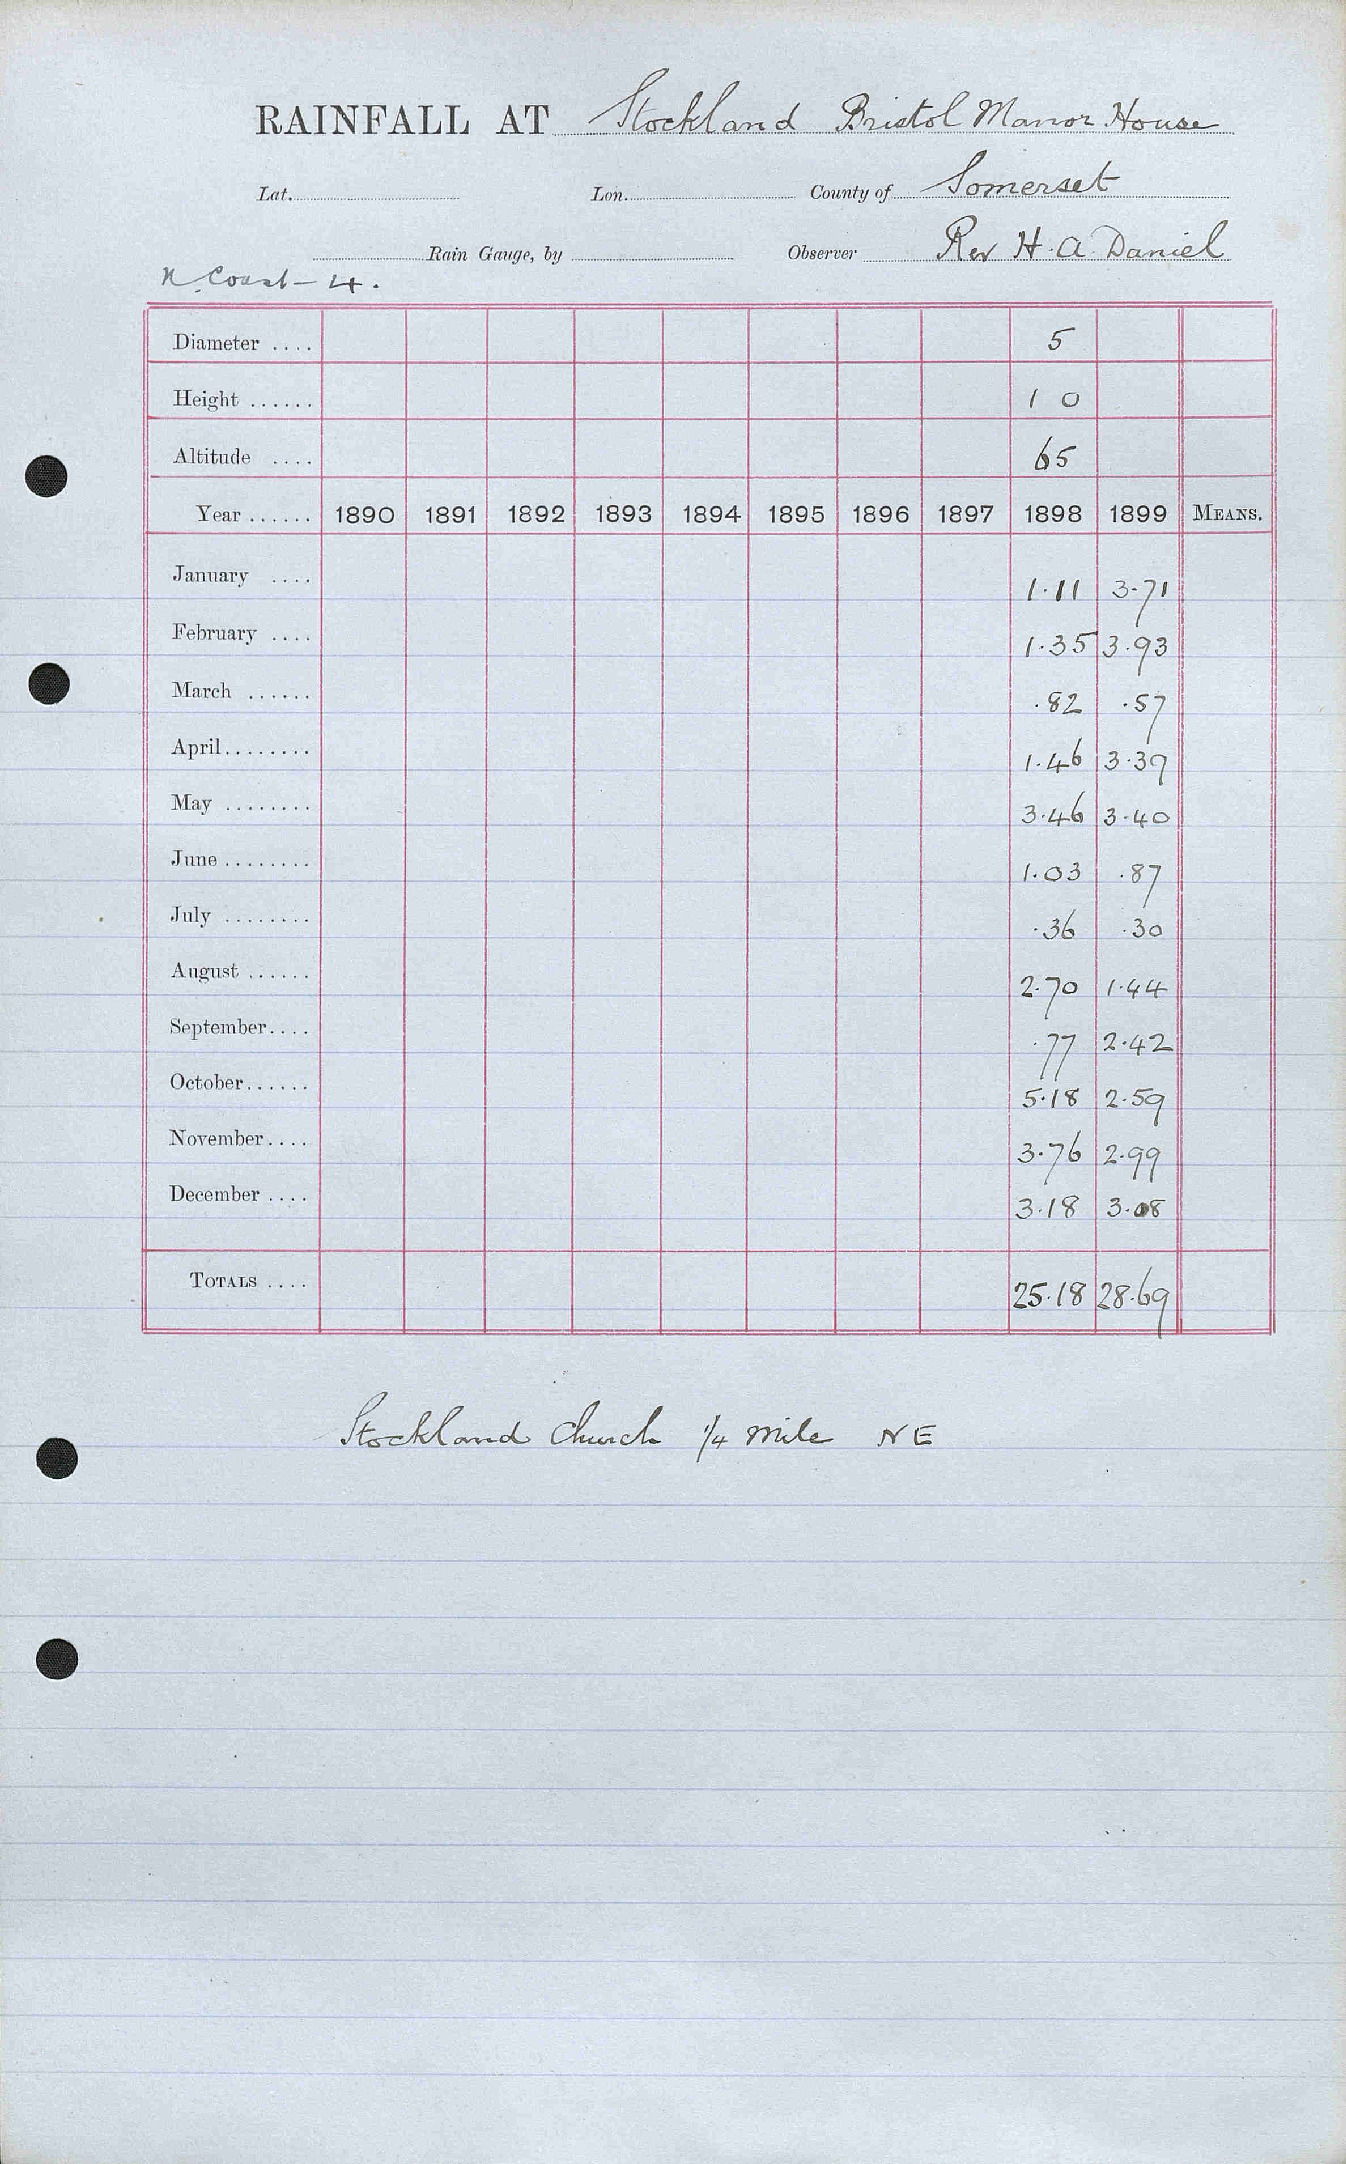 RAINFALL AT Stockland Bristol Manor House
Lat. Lon. County of Somerset
Rain Gauge, by Observer Rev H. A. Daniel
N. Coast - 4.
Diameter .... 5
Height ...... 1 0
Altitude .... 65
Year ...... 1890 1891 1892 1893 1894 1895 1896 1897 1898 1899 MEANS.
January .... 1.11 3.71
February .... 1.35 3.93
March ...... .82 .57
April........ 1.46 3.39
May ........ 3.46 3.40
June ........ 1.03 .87
July ........ .36 .30
August ...... 2.70 1.44
September.... .77 2.42
October...... 5.18 2.59
November.... 3.76 2.99
December .... 3.18 3.08
TOTALS .... 25.18 28.69
Stockland Church 1/4 mile NE